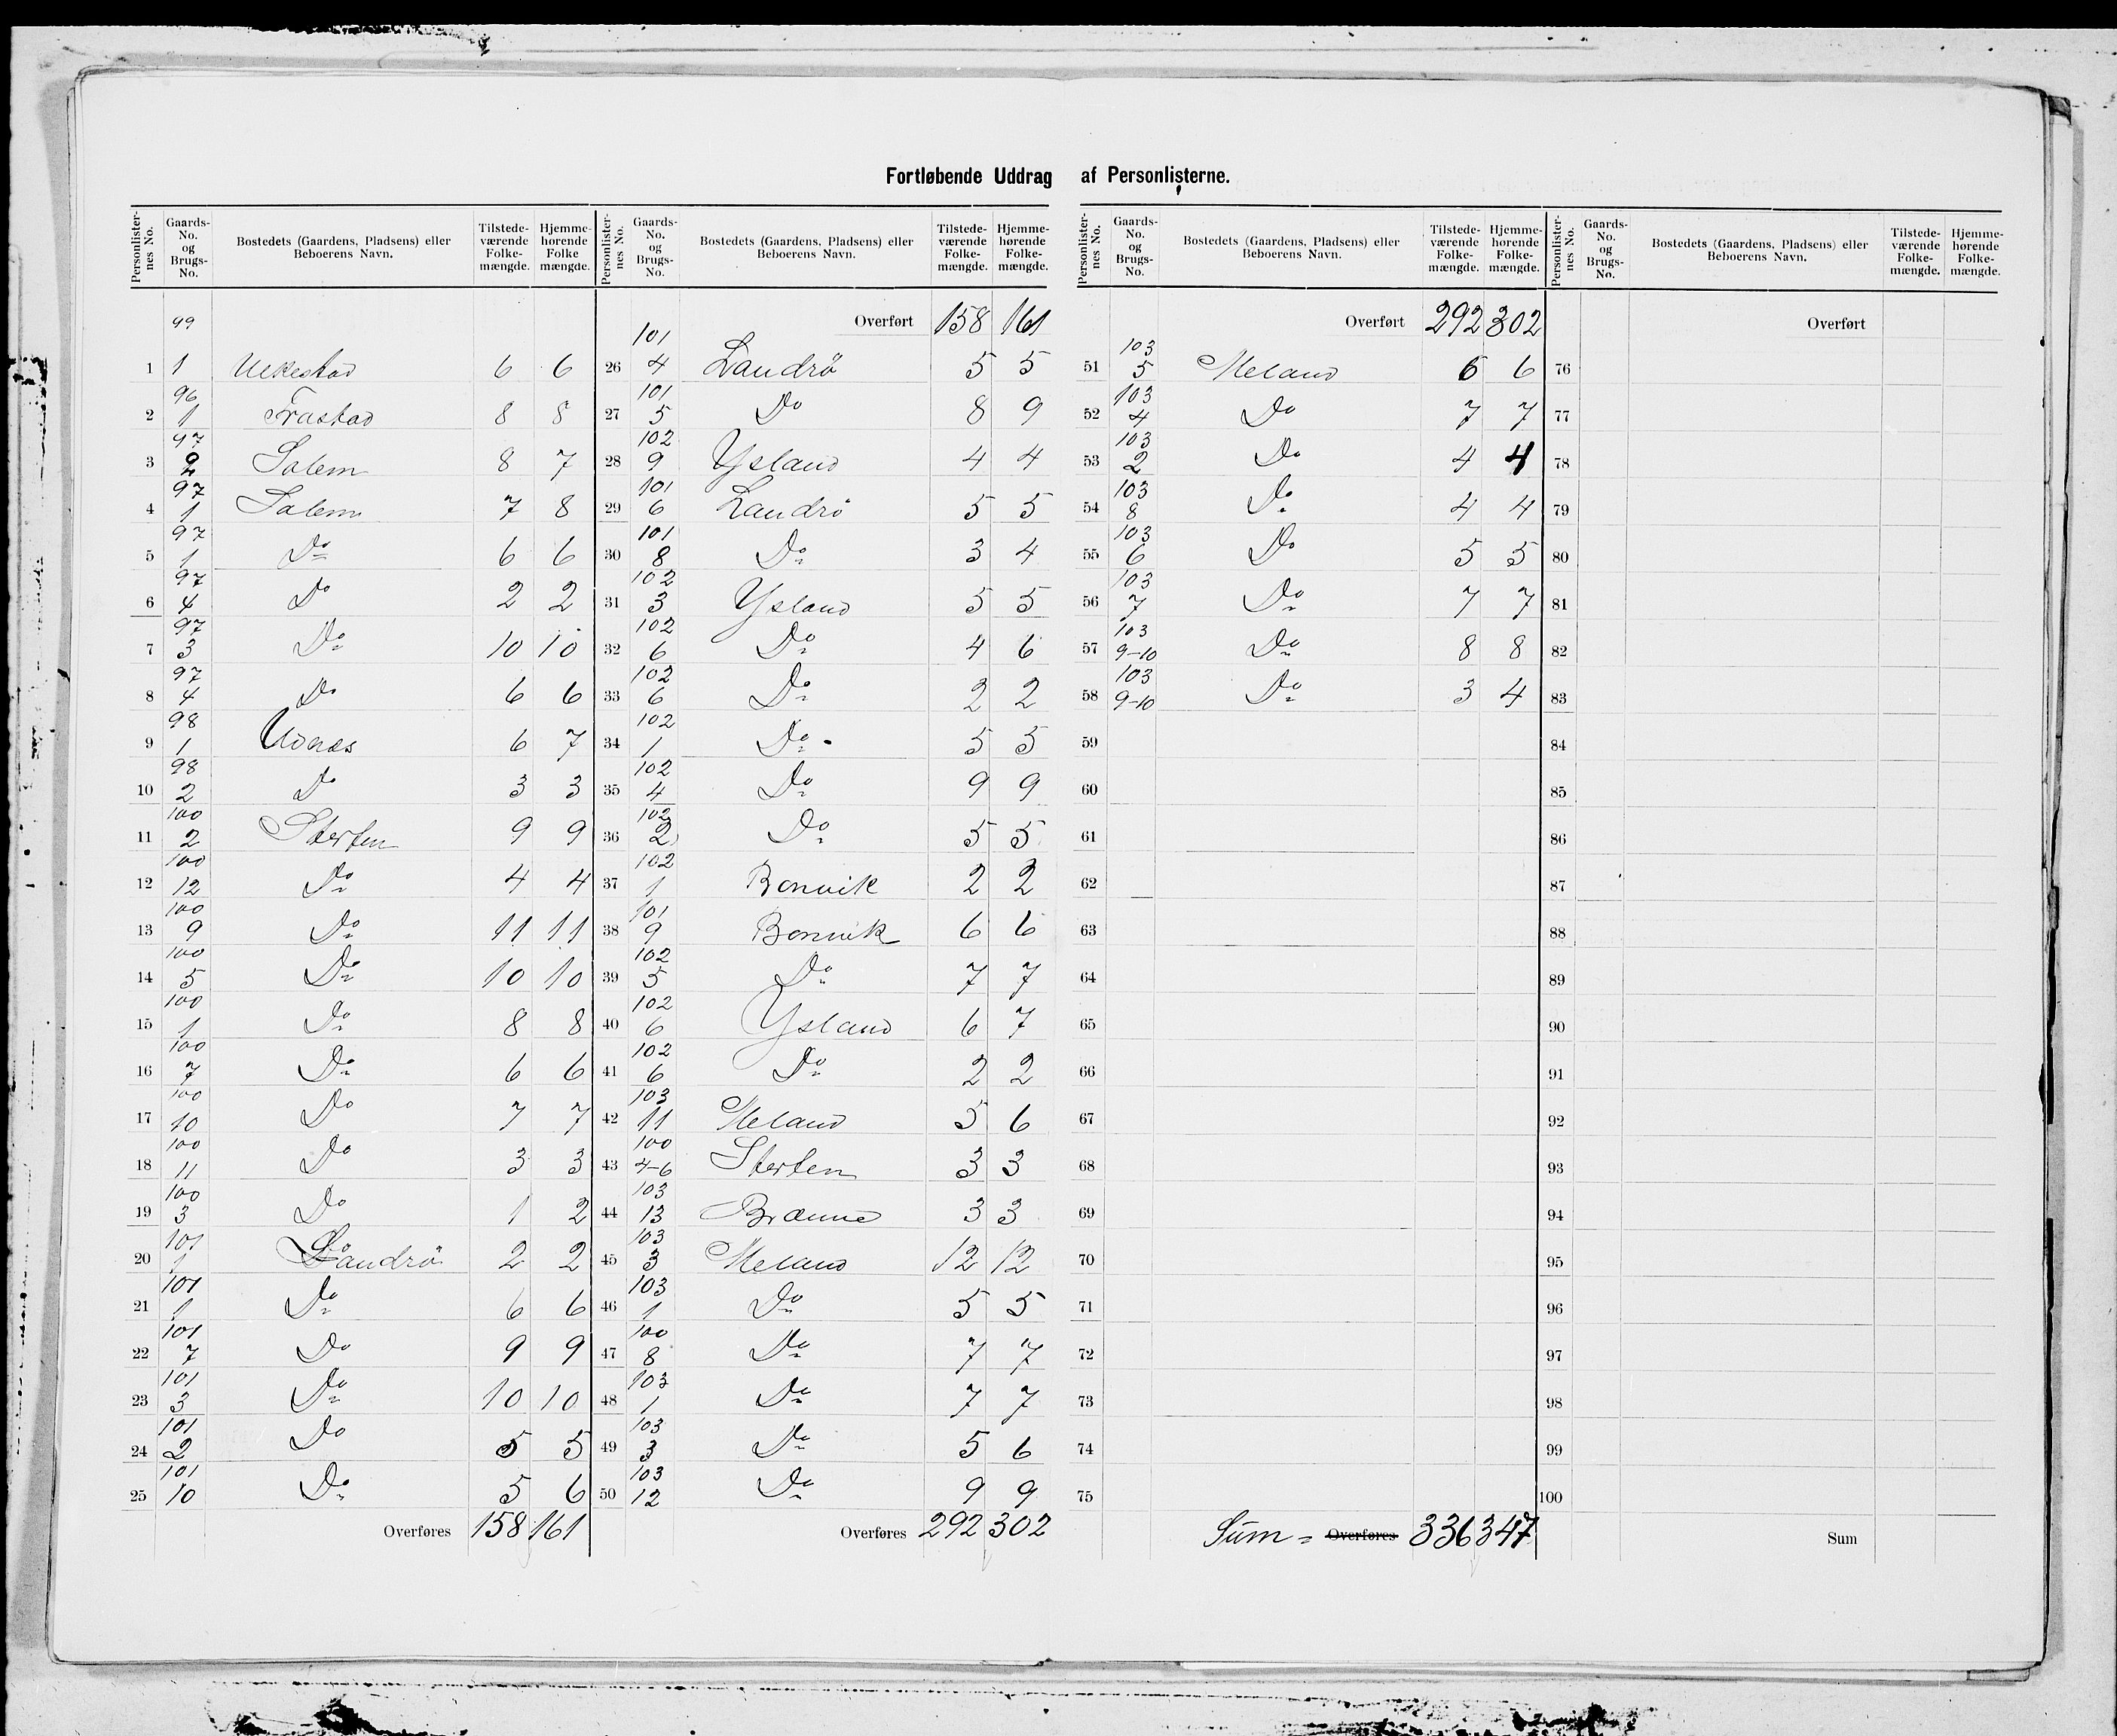 Fortløbende Uddrag af Personlisterne.
Personlister-nes No. | Gaards-No. og Brugs-No. | Bostedets (Gaardens, Pladsens) eller Beboerens Navn. | Tilstede-værende Folke-mængde. | Hjemme-hørende Folke mængde.
1 | 99 1 | Ulkestad | 6 | 6
2 | 96 1 | Frastad | 8 | 8
3 | 97 2 | Solem | 8 | 7
4 | 97 1 | Solem | 7 | 8
5 | 97 1 | Do | 6 | 6
6 | 97 4 | Do | 2 | 2
7 | 97 3 | Do | 10 | 10
8 | 97 4 | Do | 6 | 6
9 | 98 1 | Udnæs | 6 | 7
10 | 98 2 | Do | 3 | 3
11 | 100 2 | Sterten | 9 | 9
12 | 100 12 | Do | 4 | 4
13 | 100 9 | Do | 11 | 11
14 | 100 5 | Do | 10 | 10
15 | 100 1 | Do | 8 | 8
16 | 100 7 | Do | 6 | 6
17 | 100 10 | Do | 7 | 7
18 | 100 11 | Do | 3 | 3
19 | 100 3 | Do | 1 | 2
20 | 101 1 | Landrö | 2 | 2
21 | 101 1 | Do | 6 | 6
22 | 101 7 | Do | 9 | 9
23 | 101 3 | Do | 10 | 10
24 | 101 2 | Do | 5 | 5
25 | 101 10 | Do | 5 | 6
Overføres | 158 | 161
Personlister-nes No. | Gaards-No. og Brugs-No. | Bostedets (Gaardens, Pladsens) eller Beboerens Navn. | Tilstede-værende Folke-mængde. | Hjemme-hørende Folke-mængde.
Overført | 158 | 161
26 | 101 4 | Landrö | 5 | 5
27 | 101 5 | Do | 8 | 9
28 | 102 9 | Ysland | 4 | 4
29 | 101 6 | Landrö | 5 | 5
30 | 101 8 | Do | 3 | 4
31 | 102 3 | Ysland | 5 | 5
32 | 102 6 | Do | 4 | 6
33 | 102 6 | Do | 2 | 2
34 | 102 1 | Do | 5 | 5
35 | 102 4 | Do | 9 | 9
36 | 102 2 | Do | 5 | 5
37 | 102 1 | Bonvik | 2 | 2
38 | 101 9 | Bonvik | 6 | 6
39 | 102 5 | Do | 7 | 7
40 | 102 6 | Ysland | 6 | 7
41 | 102 6 | Do | 2 | 2
42 | 103 11 | Meland | 5 | 6
43 | 100 4-6 | Sterten | 3 | 3
44 | 103 13 | Brænne | 3 | 3
45 | 103 3 | Meland | 12 | 12
46 | 103 1 | Do | 5 | 5
47 | 100 8 | Do | 7 | 7
48 | 103 1 | Do | 7 | 7
49 | 103 3 | Do | 5 | 6
50 | 103 12 | Do | 9 | 9
Overføres | 292 | 302
Personlister-nes No. | Gaards-No. og Brugs-No. | Bostedets (Gaardens, Pladsens) eller Beboerens Navn. | Tilstede-værende Folke-mængde. | Hjemme-hørende Folke-mængde.
Overført | 292 | 302
51 | 103 5 | Meland | 6 | 6
52 | 103 4 | Do | 7 | 7
53 | 103 2 | Do | 4 | 4
54 | 103 8 | Do | 4 | 4
55 | 103 6 | Do | 5 | 5
56 | 103 7 | Do | 7 | 7
57 | 103 9-10 | Do | 8 | 8
58 | 103 9-10 | Do | 3 | 4
59
60
61
62
63
64
65
66
67
68
69
70
71
72
73
74
75
Sum = Overføres | 336 | 347
Personlister-nes No. | Gaards-No. og Brugs-No. | Bostedets (Gaardens, Pladsens) eller Beboerens Navn. | Tilstede-værende Folke-mængde. | Hjemme-hørende Folke-mængde.
Overført
76
77
78
79
80
81
82
83
84
85
86
87
88
89
90
91
92
93
94
95
96
97
98
99
100
Sum